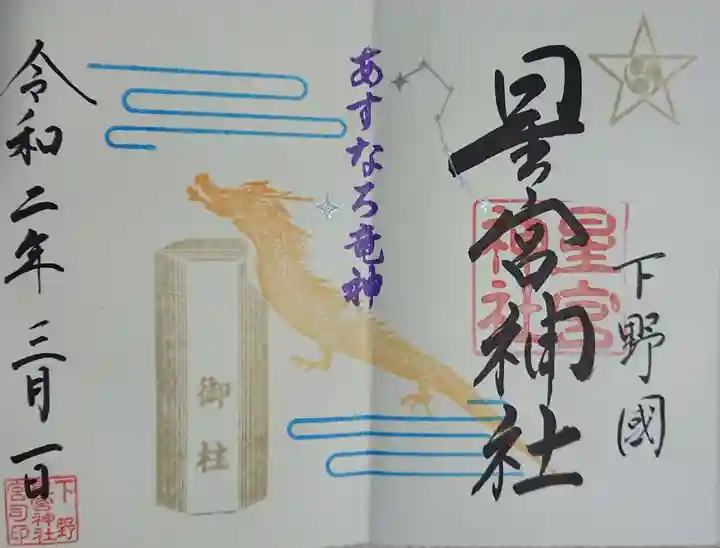 下野國
星宮神社
星宮
神社
あすなろ竜神
御柱
令和二年 三月一日
下野
星宮神社
宮司印